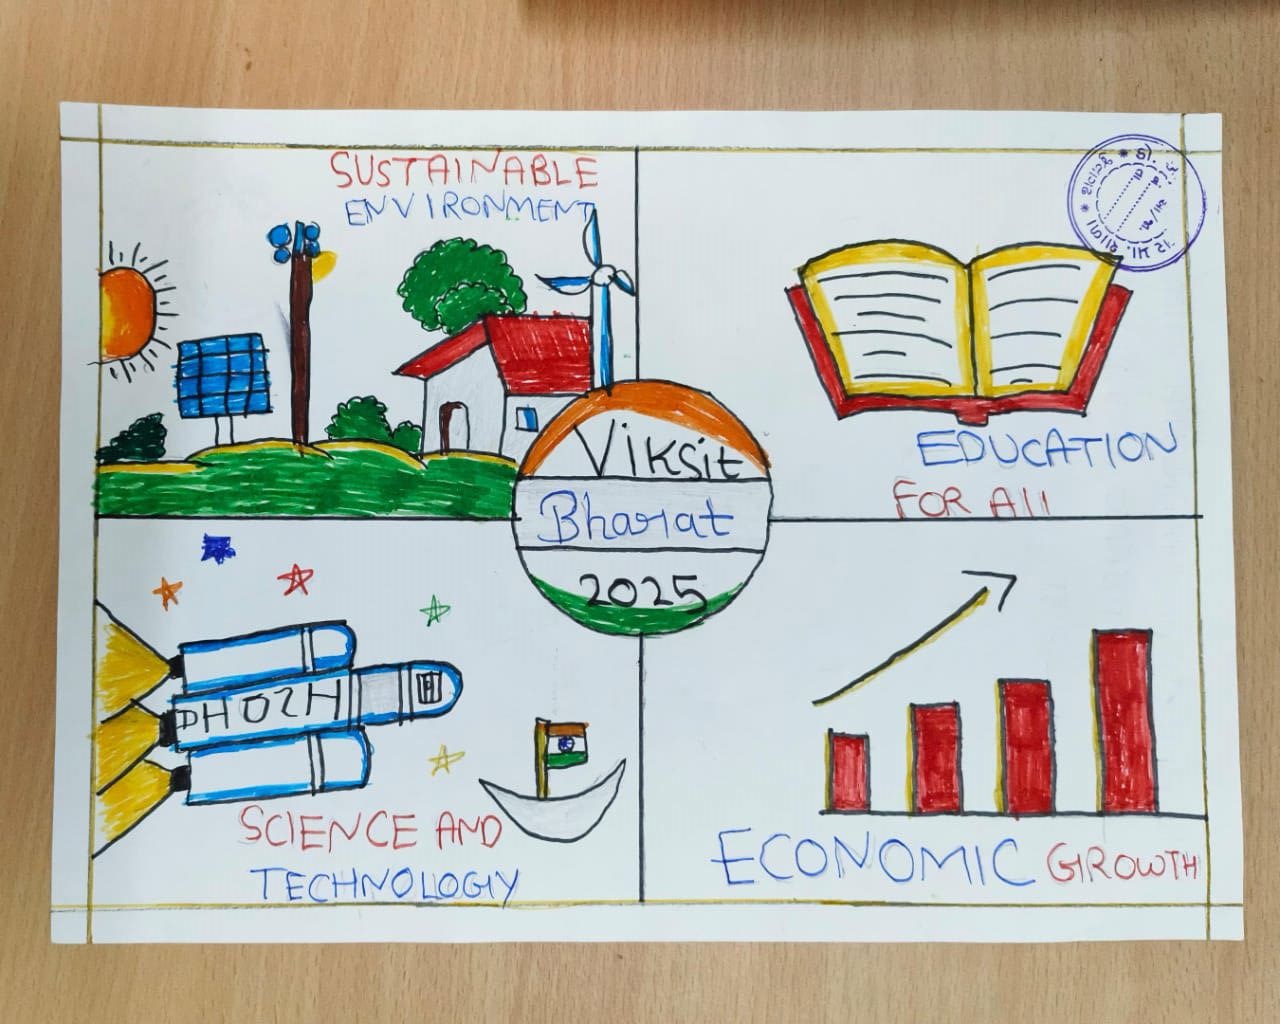 SUSTAINABLE
ENVIRONMENT
EDUCATION
FOR All
Viksit
Bharat
2025
SCIENCE AND
TECHNOLOGY
ECONOMIC GROWTH